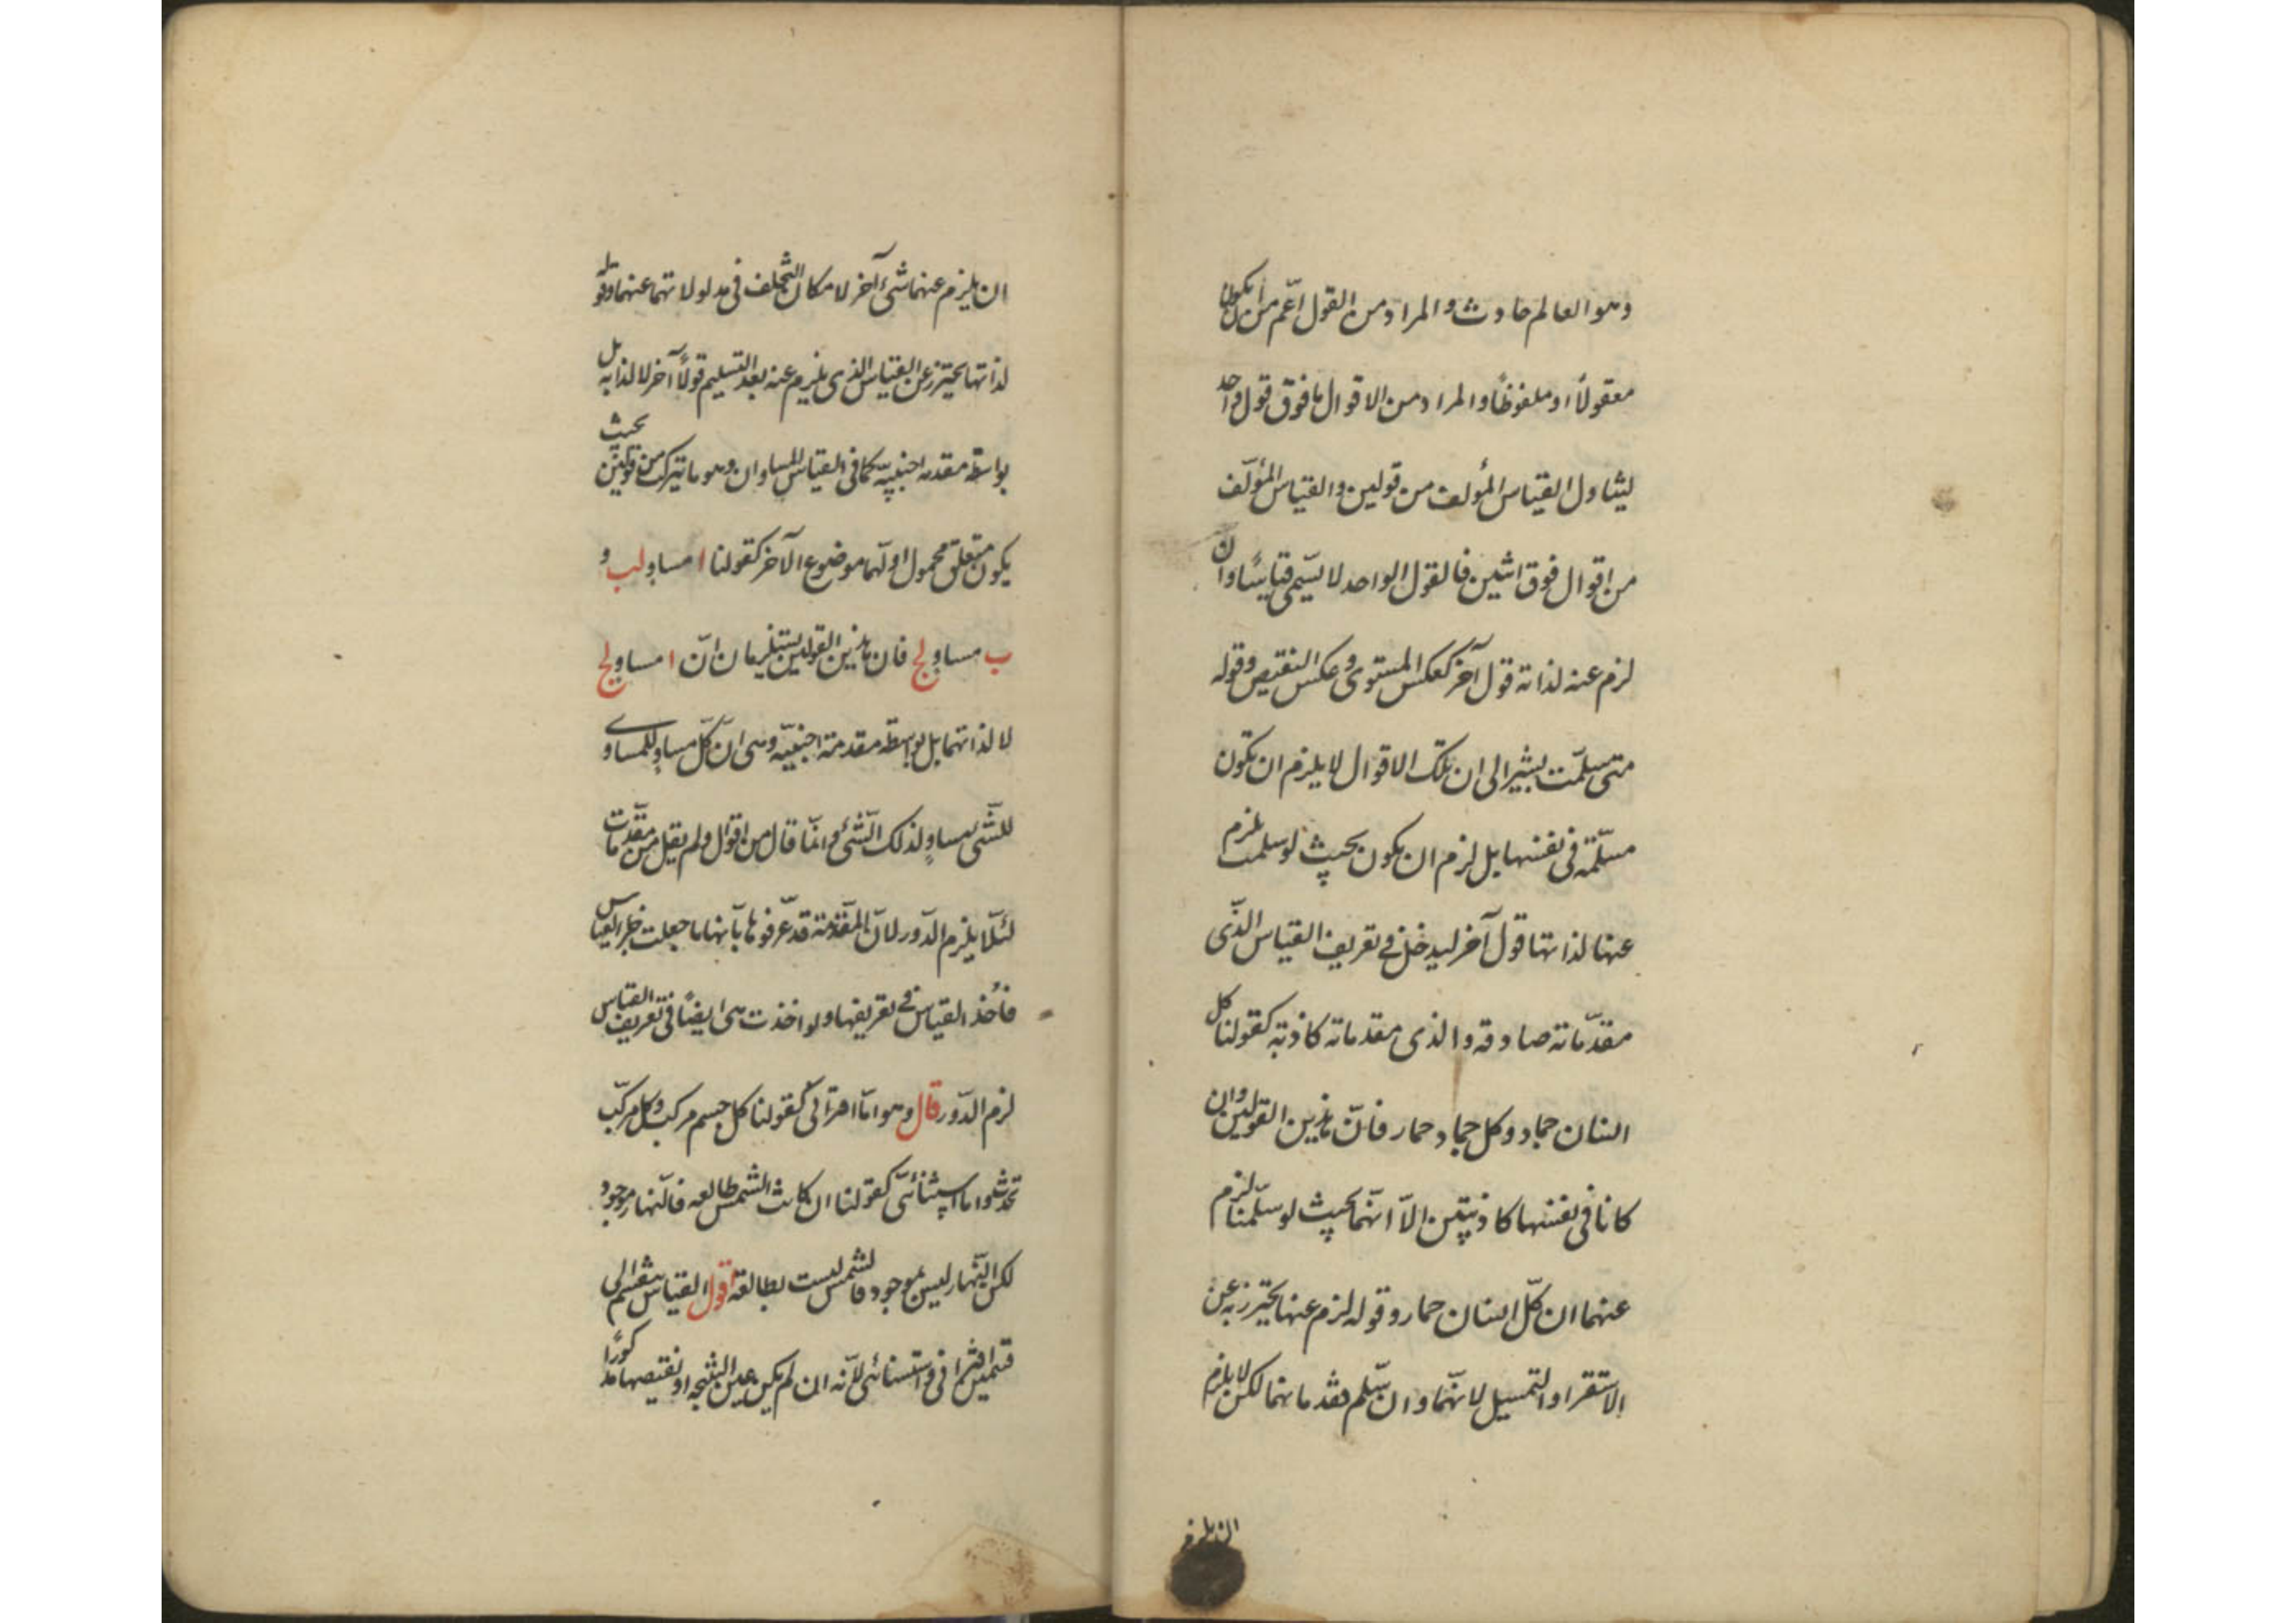 وهو العالم حادث والمراد من القول اعّم من ان يكون
معقولاً او ملفوظاً والمراد من الاقوال ما فوق قول واحد
ليتناول القياس المؤلف من قولين والقياس المؤلّف
من اقوال فوق اثنين فالقول الواحد لا يسّمى قياسًا وان
لزم عنه لذاته قول آخر كعكس المستوى وعكس النقيض وقوله
متى سلّمت يشير الى ان تلك الاقوال لا يلزم ان تكون
مسلّمة فى نفسها بل لزم ان يكون بحيث لو سلمت لزم
عنها لذاتها قول آخر ليدخل فى تعريف القياس الذّى
مقدّماته صادقه والذى مقدماته كاذبة كقولنا كل
انسان جماد وكل جماد حمار فانّ هذين القولين وان
كانا فى نفسهما كاذبتين الاّ انّهما بحيث لو سلّمنا لزم
عنهما ان كلّ انسان حمار وقوله لزم عنها يحترز به عن
الاستقرا والتمسيل لانّهما وان سّلم مقدماتهما لكن لا يلزم
ان يلزم
ان يلزم عنهما شئ آخر لا مكان التخلف فى مدلولاتهما عنهما وقوله
لذاتها يحترز عن القياس الذى يلزم عنه بعد التسليم قولاً آخر لا لذاته بل
بواسطة مقدمه اجنبيّه كما فى القياس المساوان وهو ما يتركب من قولين بحيث
يكون متعلق محمول اولهما موضوع الآخر كقولنا ا مساوٍ لب و
ب مساوٍ لج فان هذين القولين يستلزمان انّ ا مساوٍ لج
لا لذاتهما بل بواسطه مقدمة اجنبيّه وهى انّ كلّ مساوٍ للمساوى
للشّئ مساوٍ لذلك الشّئ وانّما قال من اقوال ولم يقل من مقدّمات
لئلّا يلزم الدّور لانّ المقدّمة قد عّرفوها بأنها ما جعلت جزء القياس
فأخذ القياس فى تعريفها ولو اخذت هى ايضًا فى تعريف القياس
لزم الدّور قال وهو امّا اقترانى كقولنا كل جسم مركب وكل مركّب
محدث واما استثنائىّ كقولنا ان كانت الشمس طالعه فالنّهار موجود
لكن النّهار ليس بموجود فالشمس ليست بطالعة اقول القياس ينقسم الى
قسمين اقترانى واستسنائى لانّه ان لم يكن عين النتيجه او نقيضها مذكورًا